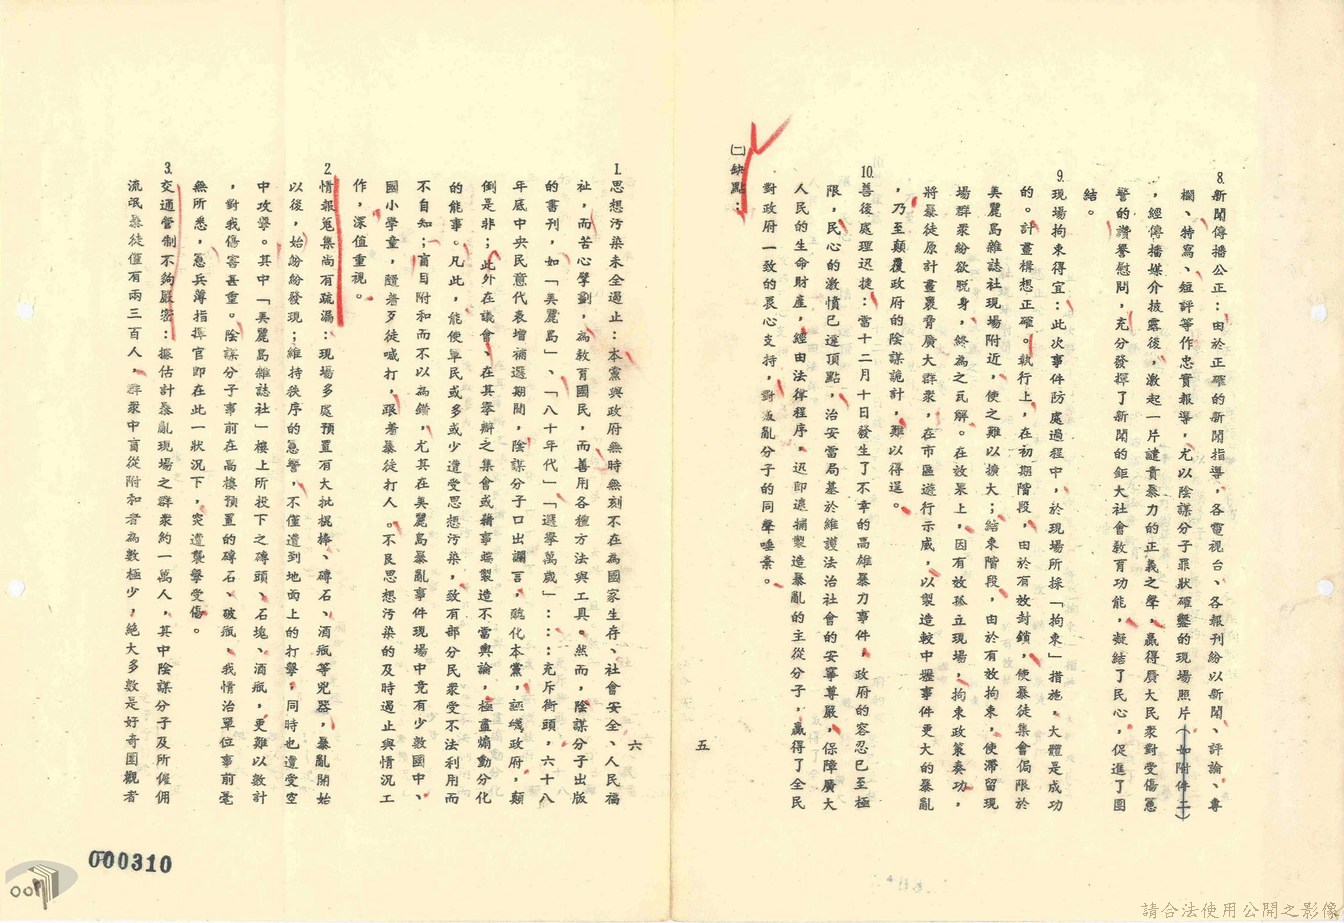 8.新聞傳播公正：由於正確的新聞指導，各電視台、各報刊紛以新聞、評論、專
欄、特寫、短評等作忠實報導，尤以陰謀分子罪狀確鑿的現場照片（如附件二）
，經傳播媒介披露後，激起一片譴責暴力的正義之聲，贏得廣大民衆對受傷憲
警的讚譽慰問，充分發揮了新聞的鉅大社會教育功能，凝結了民心，促進了團
結。
9.現場拘束得宜：此次事件防處過程中，於現場所採「拘束」措施，大體是成功
的。計畫構想正確。執行上，在初期階段，由於有效封鎖，使暴徒集會侷限於
美麗島雜誌社現場附近，使之難以擴大；結束階段，由於有效拘束，使滯留現
場群衆紛欲脫身，終為之瓦解。在效果上，因有效孤立現場，拘束政策奏功，
將暴徒原計畫裹脅廣大群衆，在市區遊行示威，以製造較中壢事件更大的暴亂
，乃至顛覆政府的陰謀詭計，難以得逞。
10.善後處理迅捷：當十二月十日發生了不幸的高雄暴力事件，政府的容忍已至極
限，民心的激憤已達頂點，治安當局基於維護法治社會的安寧尊嚴，保障廣大
人民的生命財產，經由法律程序，迅即逮捕製造暴亂的主從分子，贏得了全民
對政府一致的衷心支持，對叛亂分子的同聲唾棄。
㈡缺點：
五
六
1.思想污染未全遏止：本黨與政府無時無刻不在為國家生存、社會安全、人民福
祉，而苦心擘劃，為教育國民，而善用各種方法與工具。然而，陰謀分子出版
的書刊，如「美麗島」、「八十年代」「選舉萬歲」：：：充斥街頭，六十八
年底中央民意代表增補選期間，陰謀分子口出讕言，醜化本黨，誣衊政府，顛
倒是非；此外在議會、在其舉辦之集會或藉事端製造不當輿論，極盡煽動分化
的能事。凡此，能使軍民或多或少遭受思想污染，致有部分民衆受不法利用而
不自知；盲目附和而不以為錯，尤其在美麗島暴亂事件現場中竟有少數國中、
國小學童，隨著歹徒喊打，跟著暴徒打人。不良思想污染的及時遏止與情況工
作，深值重視。
2.情報蒐集尚有疏漏：現場多處預置有大批棍棒、磚石、酒瓶等兇器，暴亂開始
以後，始紛紛發現；維持秩序的憲警，不僅遭到地面上的打擊，同時也遭受空
中攻擊。其中「美麗島雜誌社」樓上所投下之磚頭、石塊、酒瓶，更難以數計
，對我傷害甚重。陰謀分子事前在高樓預置的磚石、破瓶、我情治單位事前毫
無所悉，憲兵薄指揮官即在此一狀況下，突遭襲擊受傷。
3.交通管制不夠嚴密：據估計暴亂現場之群衆約一萬人，其中陰謀分子及所僱佣
流氓暴徒僅有兩三百人，群衆中盲從附和者為數極少，絕大多數是好奇圍觀者
000310
請合法使用公開之影像